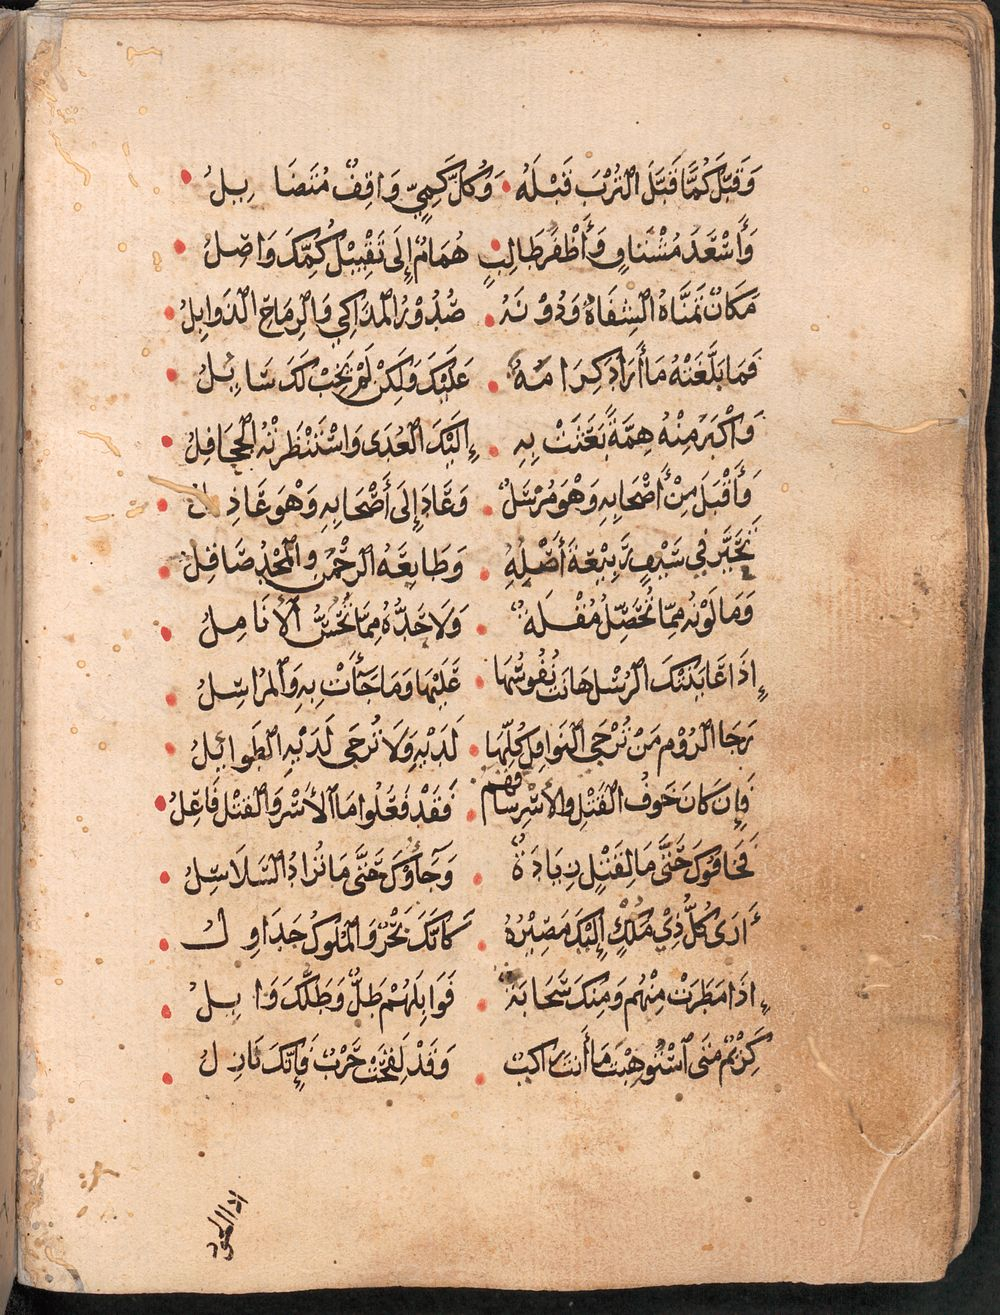 وَقَبَّلَ كُمًّا قَبَّلَ التُّرْبَ قَبْلَهُ وَكُلُّ كَمِيٍّ وَاقِفٌ مُتَضَا بِلُ
وَأَسْعَدُ مُشْتَاقٍ وَأَظْفَرُ طَالِبٍ هُمَامٌ إِلَى تَقْبِيْلِ كُمِّكَ وَاصِلُ
مَكَانٌ تَمَنَّاهُ الشِفَاهُ وَدُوْنَهُ صُدُوْرُ المَذَاكِي وَالرِمَاحُ الذَوَابِلُ
فَمَا بَلَّغَتْهُ مَا أَرَادَ كِرَامَهٌ عَلَيْكَ وَلَكِنْ لَمْ يَخِبْ لَكَ سَايِلُ
وَاكْبَرَ مِنْهُ هِمَّةً بَعَثَتْ بِهِ إِلَيْكَ العُدَى وَاسْتَنْظَرَتْهُ الجَحَافِلُ
وَأَقْبَلَ مِنْ أَصْحَابِهِ وَهْوَ مُرْسَلٌ وَعَادَ إِلَى أَصْحَابِهِ وَهْوَ عَاذِلُ
تَحَيَّرَ فِي سَيْفٍ رَبِيْعَةُ أَصْلُهِ وَطَابِعُهُ الرَحْمٰنُ وَالمَجْدُ صَاقِلُ
وَمَا لَوْنُهُ مِمَّا تُحَصِّلُ مُقْلَهٌ وَلَا حَدُّهُ مِمَّا تَحُسُّ الأَنَامِلُ
إِذَا عَايَنَتْكَ الرُسْلُ هَانَتْ نُفُوسُهَا عَلَيْهَا وَمَا جَآءَتْ بِهِ وَالمُرَاسِلُ
رَجَا الرُوْمُ مَنْ تُرْجَى النَوَافِلُ كُلُّهَا لَدَيْهِ وَلَا تُرْجَى لَدَيْهِ الطَوَايِلُ
فَإِن كَانَ خَوفُ القَتْلِ وَالأَسْرِ سَاقَهُم فَقَدْ فَعَلُوا مَا الأَسْرُ وَالقَتْلُ فَاعِلُ
فَخَافُوكَ حَتَّى مَا لِقَتْلٍ زِيَادَةٌ وَجَآؤُكَ حَتَّى مَا تُرَادُ السَلَاسِلُ
أَرَى كُلَّ ذِيْ مُلْكٍ إِلَيْكَ مَصِيْرُهُ كَأَنَّكَ بَحْرٌ وَالمُلُوكُ جَدَاوِلُ
إِذَا مَطَرَتْ مِنْهُم وَمِنْكَ سَحَابَةٌ فَوَابِلُهُمْ طَلٌّ وَطَلُّكَ وَابِلُ
كَرِيْمٌ مَتَى اسْتُوهِبْتَ مَا أَنْتَ رَاكِبٌ وَقَدْ لَقِحَتْ حَرْبٌ فَإِنَّكَ نَازِلُ